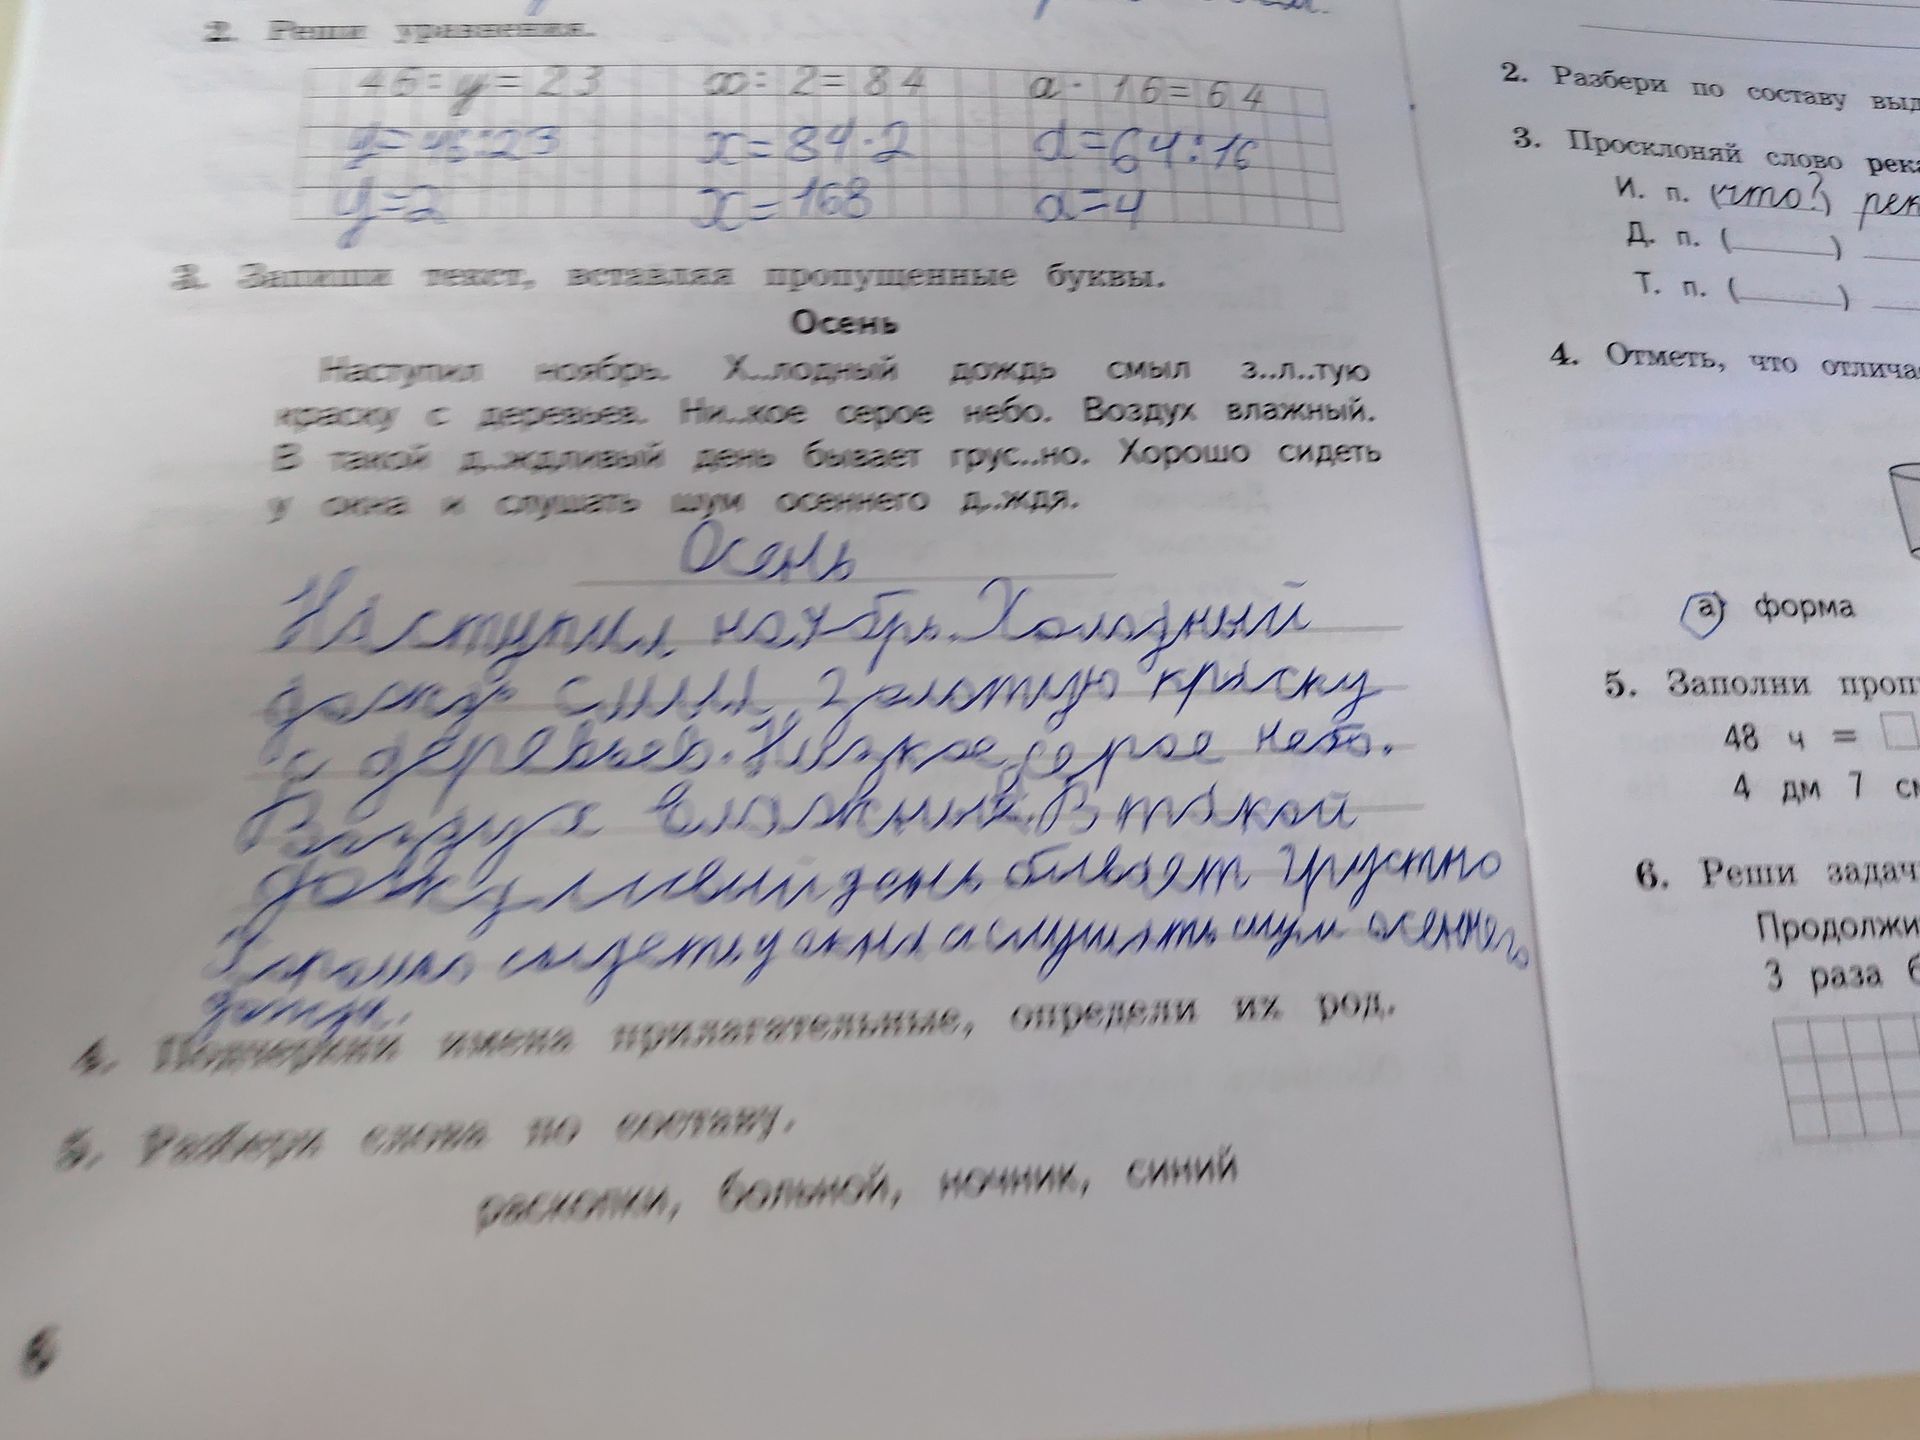 2. Реши уравнения.
46 : y = 23 x : 2 = 84 a · 16 = 64
y = 46 : 23 x = 84 · 2 a = 64 : 16
y = 2 x = 168 a = 4
3. Запиши текст, вставляя пропущенные буквы.
Осень
Наступил ноябрь. Х..лодный дождь смыл з..л..тую
краску с деревьев. Ни..кое серое небо. Воздух влажный.
В такой д..ждливый день бывает грус..но. Хорошо сидеть
у окна и слушать шум осеннего д..ждя.
Осень
Наступил ноябрь. Холодный
смыл золотую краску
с деревьев. Низкое серое небо.
Воздух влажный. В такой
день бывает грустно
Хорошо сидеть у окна и слушать шум осеннего
4. Подчеркни имена прилагательные, определи их род.
5. Разбери слова по составу.
раскопки, больной, ночник, синий
6
2. Разбери по составу выд
3. Просклоняй слово река
И. п. (что?) рек
Д. п. (______)
Т. п. (______)
4. Отметь, что отлича
а) форма
5. Заполни проп
48 ч =
4 дм 7 см
6. Реши задач
Продолжи
3 раза б